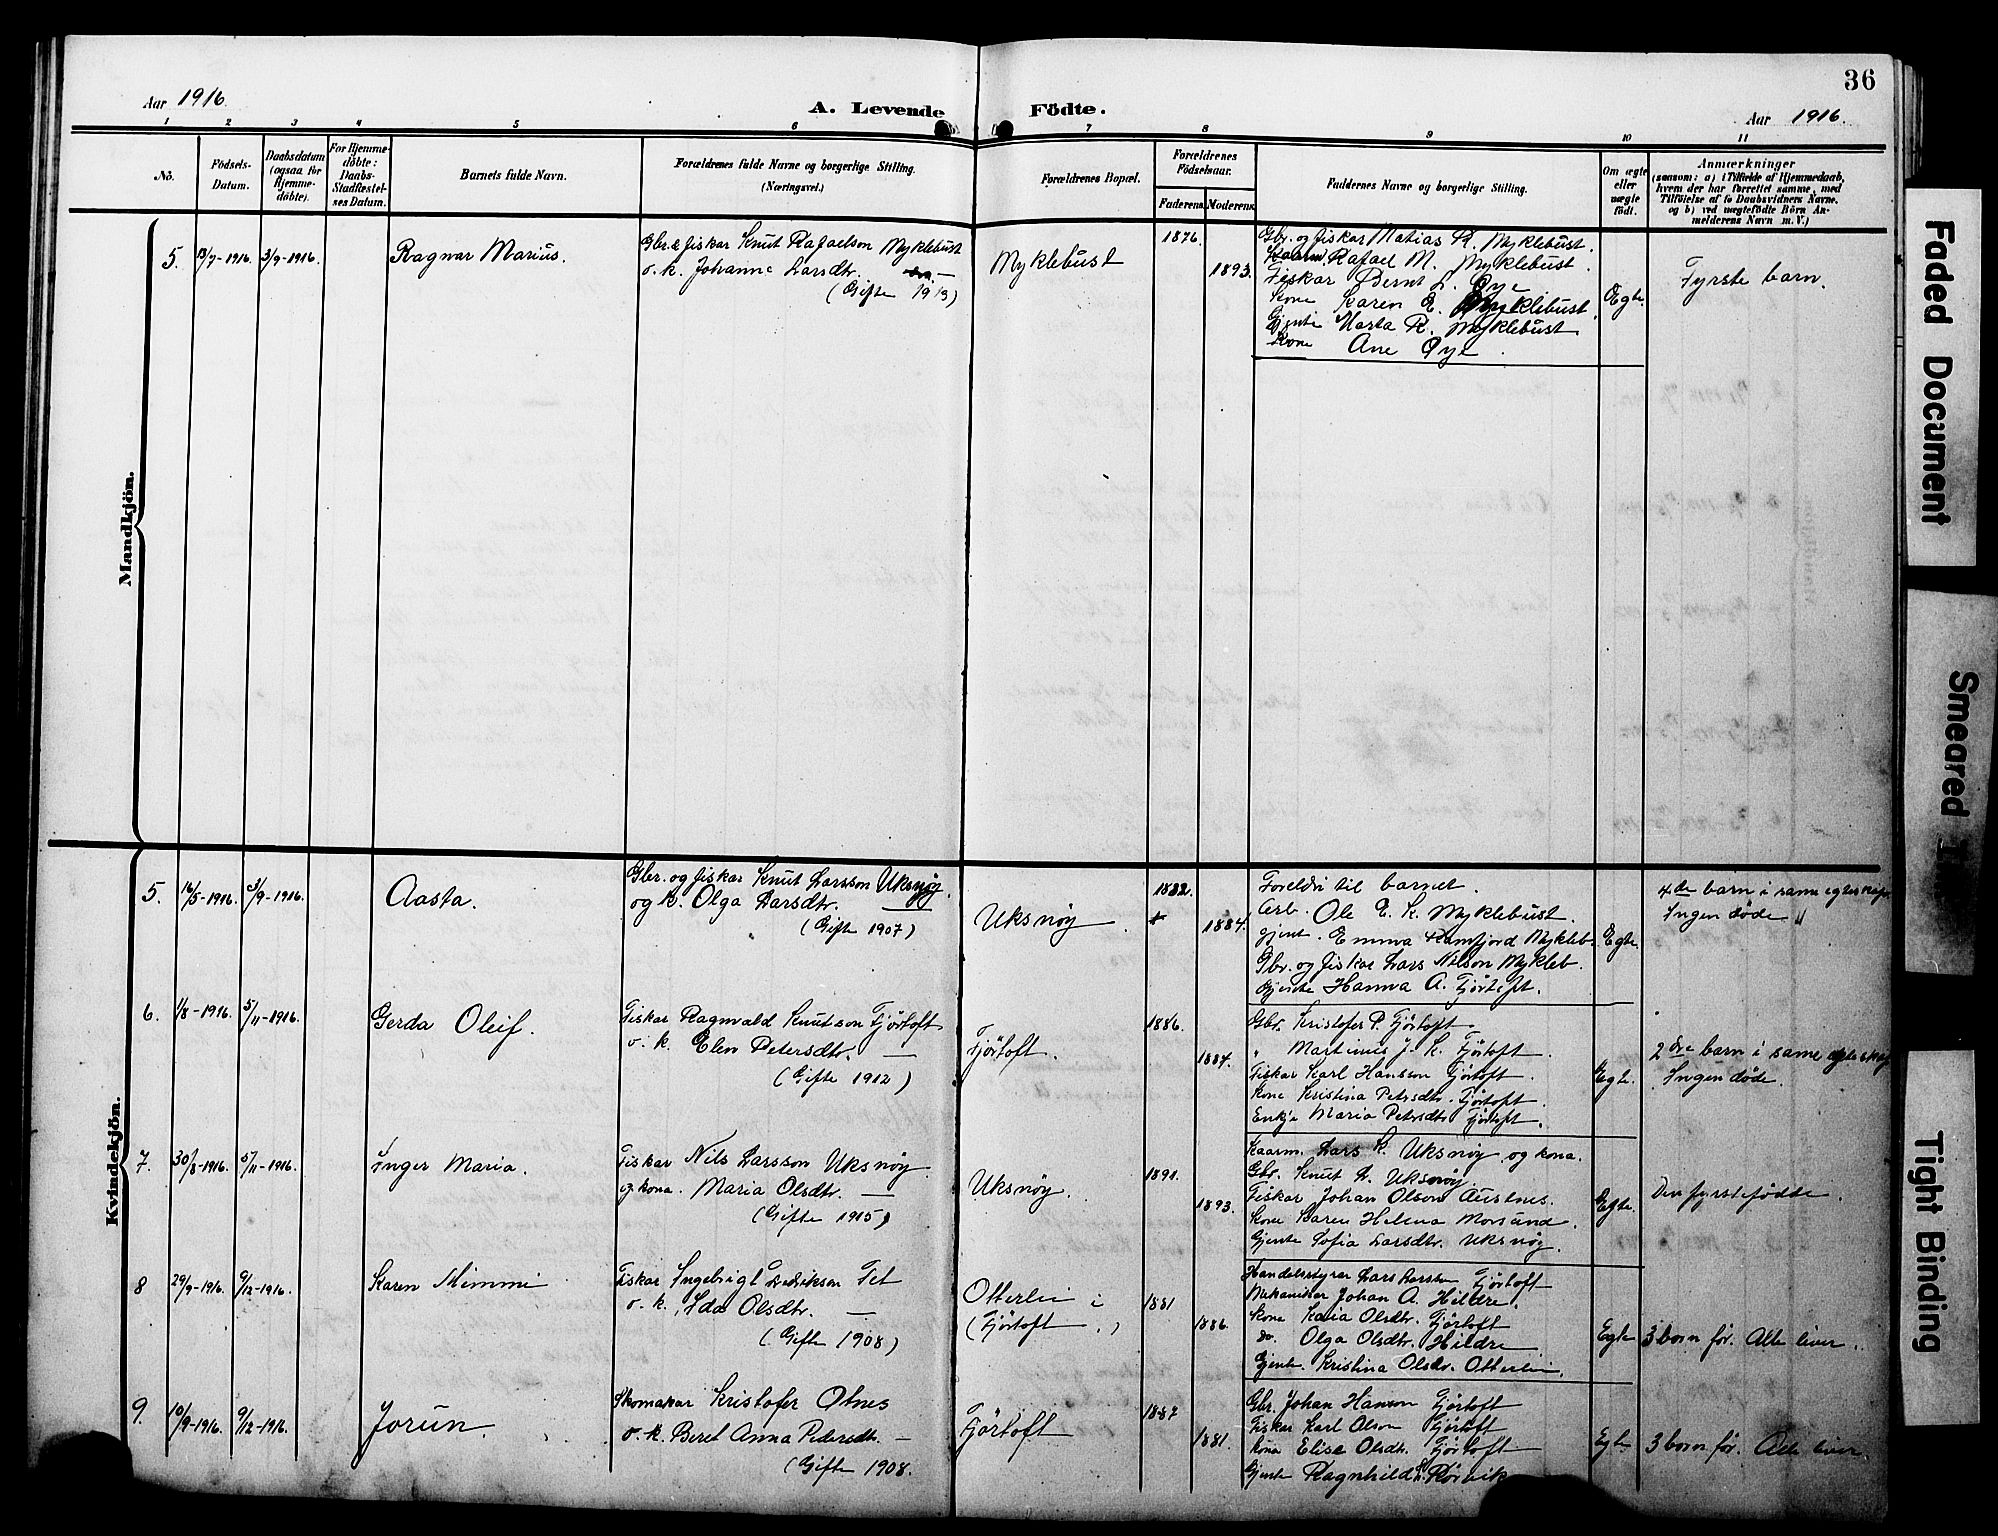 36
Aar 1916.
A. Levende Födte.
Aar 1916.
1 2 3 4 5 6 7 8 9 10 11
No.
Födsels-
Datum.
Daabsdatum
(ogsaa for
Hjemme-
døbte).
For Hjemme-
døbte:
Daabs-
Stadfæstel-
ses Datum.
Barnets fulde Navn.
Forældrenes fulde Navne og borgerlige Stilling.
(Næringsvei.)
Forældrenes Bopæl.
Forældrenes
Födselsaar.
Faderens. Moderens.
Faddernes Navne og borgerlige Stilling.
Om ægte
eller
uægte
födt.
Anmærkninger
(saasom: a) i Tilfælde af Hjemmedaab,
hvem der har forrettet samme, med
Tilföielse af to Daabsvidners Navne,
og b) ved uægtefödte Börn An-
melderens Navn m. V.)
Mandkjön.
5. 13/7-1916. 3/9-1916.
Ragnar Marius.
Gbr. & fiskar Knut Rafaelson Myklebust
o. k. Johanne Larsdtr. —
(Gifte 1913)
Myklebust
1876.
1893.
Gbr. og fiskar Matias R. Myklebust.
Kaarm. Rafael M. Myklebust.
Fiskar Bernt L. Øye
Kone Karen E. Myklebust.
Gjente Marta R. Myklebust
Kone Ane Øye.
Egte.
Fyrste barn.
Kvindekjön.
5. 16/5-1916. 3/9-1916.
Aasta.
Gbr. og fiskar Knut Larsson Uksnøy.
og k. Olga Larsdtr. —
(Gifte 1907)
Uksnøy
1882.
1884.
Foreldri til barnet.
Arb. Ole E. K. Myklebust.
gjent. Emma Ramfjord Mykleb.
Gbr. og fiskar Lars Nilson Mykleb.
Gjente Hanna A. Fjørtoft.
Egte.
4de barn i same egteskap.
Ingen døde
6. 1/8-1916. 5/11-1916.
Gerda Oleif.
Fiskar Ragnvald Knutson Fjørtoft
o. k. Elen Petersdtr. —
(Gifte 1912)
Fjørtoft.
1886.
1884.
Gbr. Kristofer P. Fjørtoft.
" Martinus J. K. Fjørtoft.
Fiskar Karl Hansson Fjørtoft.
Kone Kristina Petersdtr. Fjørtoft.
Enkje Maria Petersdtr Fjørtoft.
Egte.
2dre barn i same egteskap
Ingen døde.
7. 30/8-1916. 5/11-1916.
Inger Maria.
Fiskar Nils Larsson Uksnøy
og kona. Maria Olsdtr. —
(Gifte 1915)
Uksnøy.
1891.
1893.
Kaarm. Lars K. Uksnøy og kona.
Gbr. Knut L. Uksnøy.
Fiskar Johan Olson Austnes.
Kone Karen Helena Morsund.
Gjente Sofia Larsdtr. Uksnøy.
Egte.
Den fyrstefødde.
8 29/9-1916. 9/12-1916.
Karen Mimmi
Fiskar Ingebrigt Fredrikson Fet
o. k. Ida Olsdtr. —
(Gifte 1908)
Otterlei i
(Fjørtoft.)
1881
1886.
Handelsstyrar Lars Larsson Fjørtoft
Mekanikar Johan A. Hildre.
Kone Karia Olsdtr. Fjørtoft
do. Olga Olsdtr. Hildre
Gjente. Kristina Olsdtr. Otterlei.
Egte
3 born før. Alle liver.
9. 10/9-1916. 9/12-1916.
Jorun.
Skomakar Kristofer Otnes
o. k. Beret Anna Pedersdtr. —
(Gifte 1908.
Fjørtoft
1887
1881.
Gbr. Johan Hanson Fjørtoft
Fiskar Karl Olson Fjørtoft
Kona Elise Olsdtr. Fjørtoft
Gjente Ragnhild L. Rørvik
Egte
3 born før. Alle liver
Faded Document
Smeared
Tight Binding